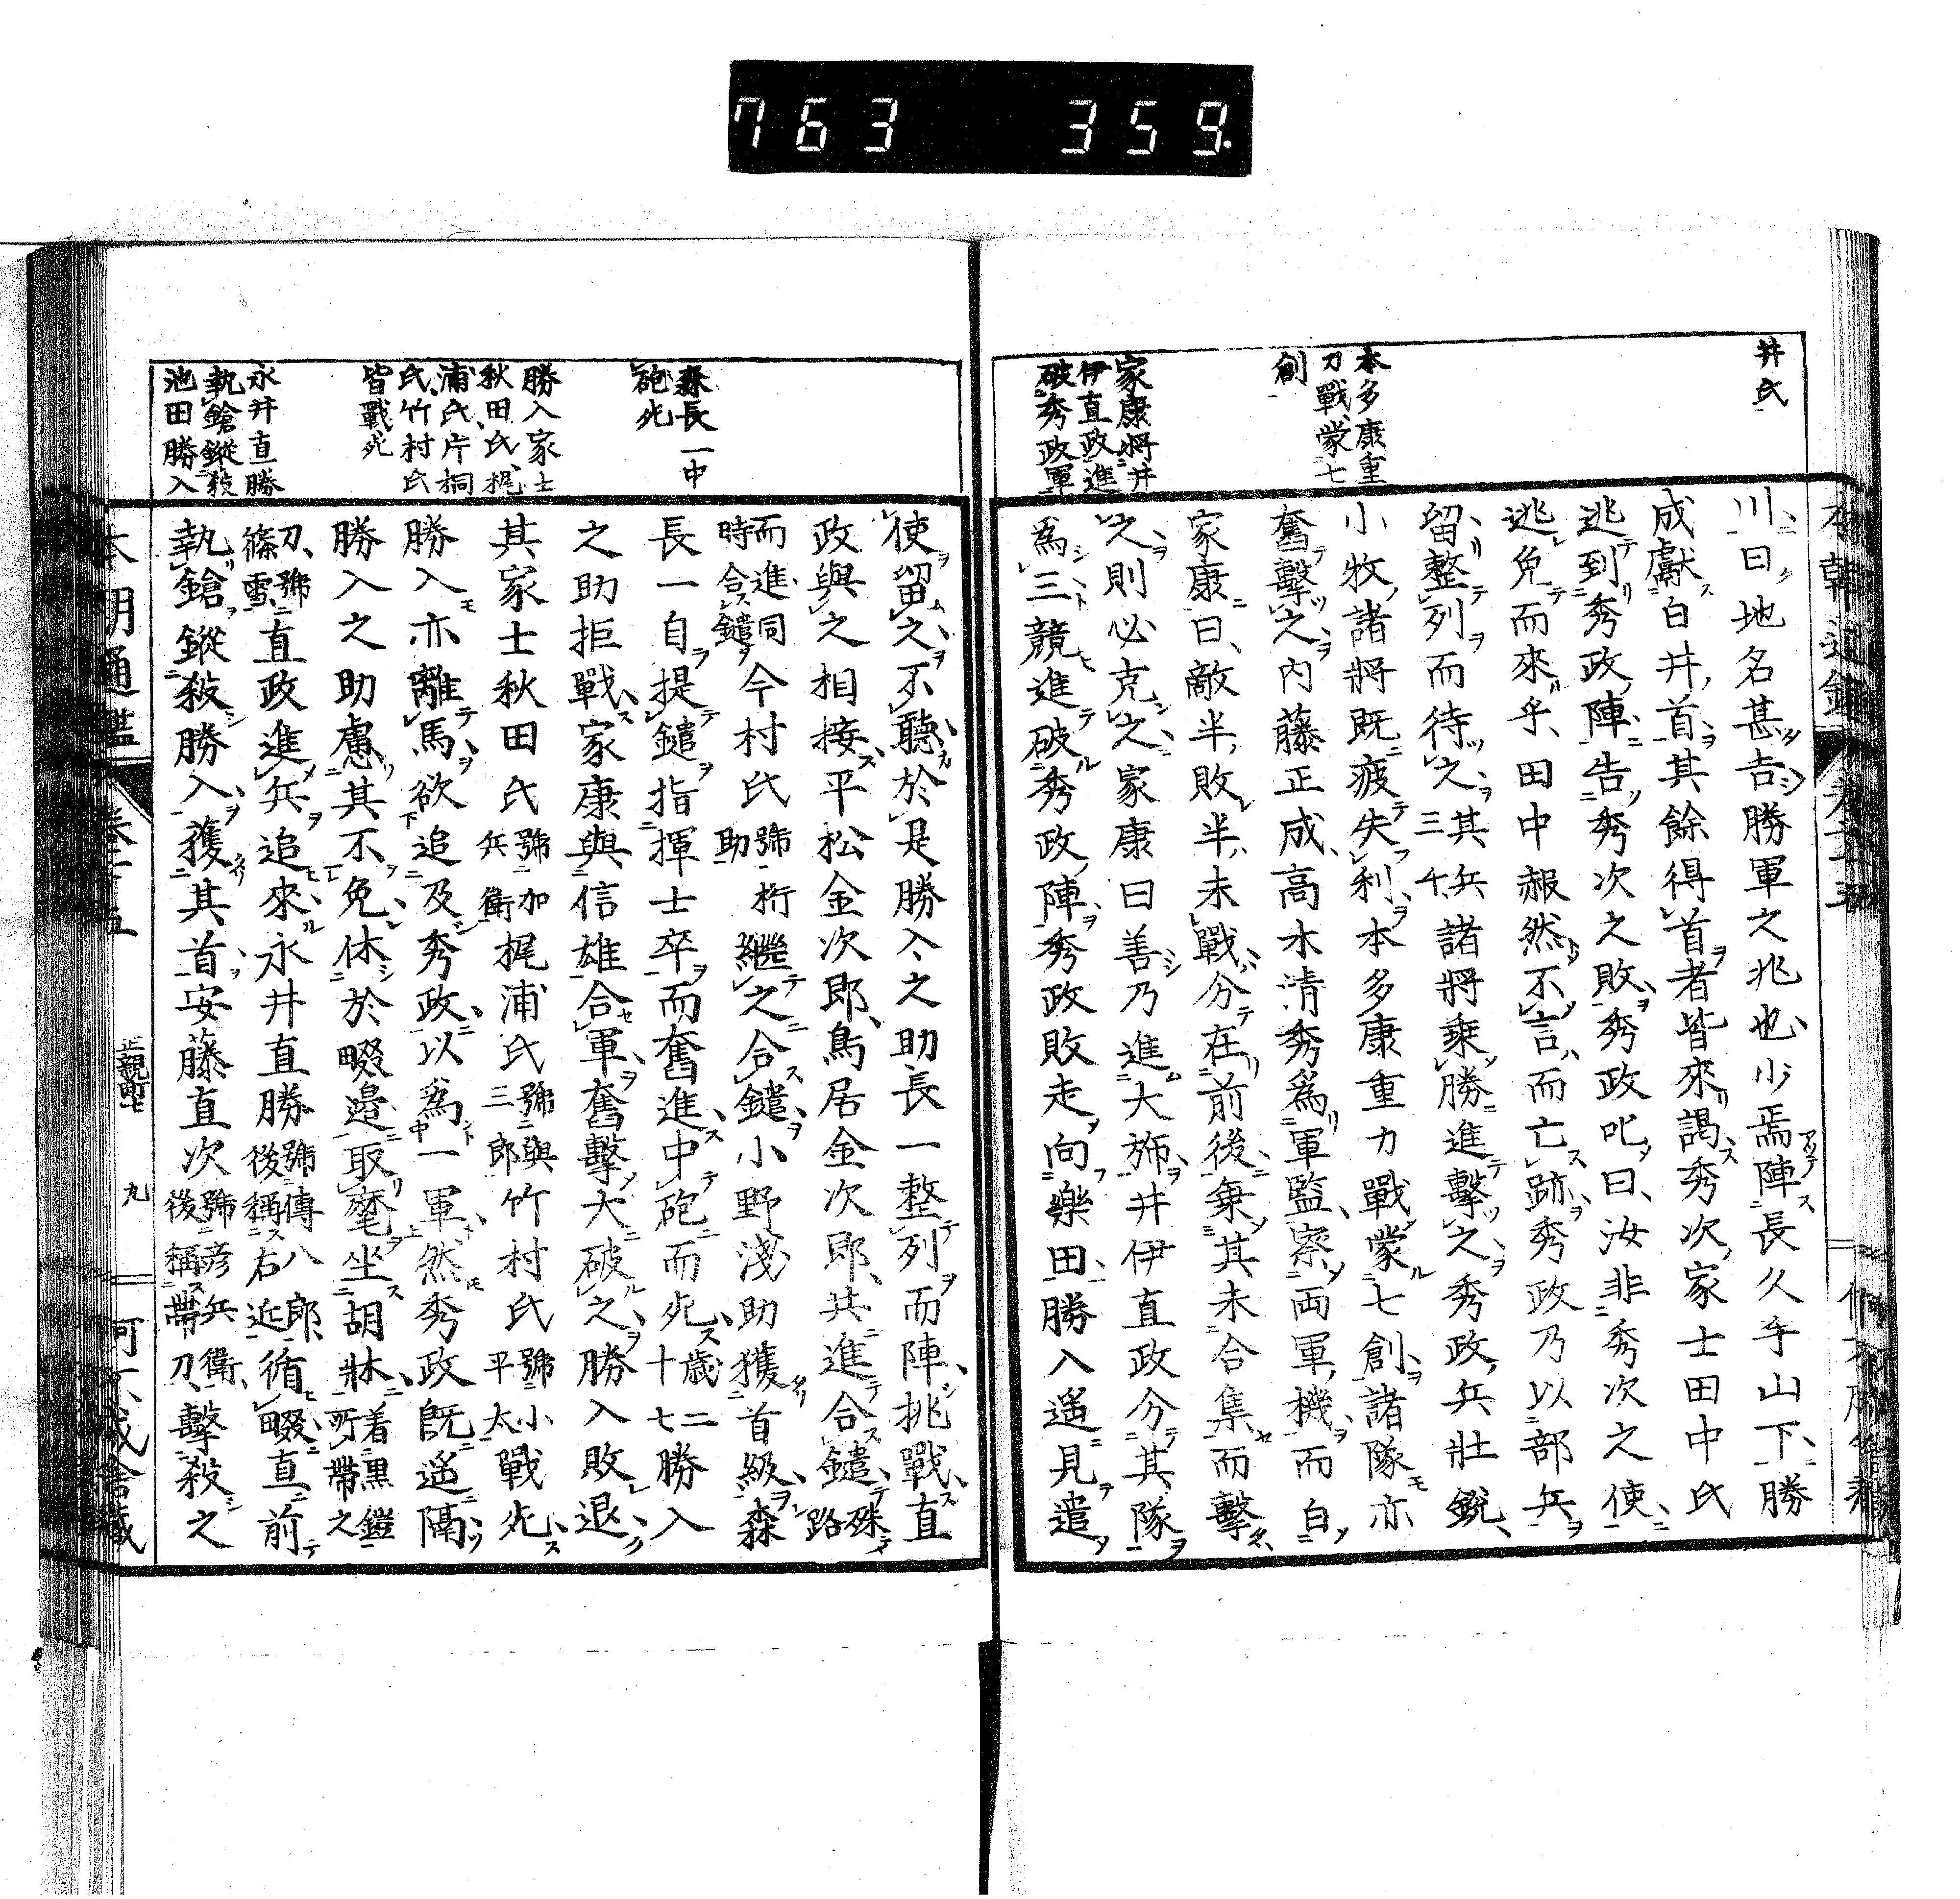 763 359
井氏
本多康重
刀戰蒙七
創
家康將井
伊直政進
破秀政軍
川曰地名甚吉勝軍之兆也少焉陣長久手山下勝
成獻白井首其餘得首者皆來謁秀次家士田中氏
逃到秀政陣告秀次之敗秀政叱曰汝非秀次之使
逃免而來乎田中赧然不言而亡跡秀政乃以部兵
留整列而待之其兵三千諸將乘勝進擊之秀政兵壯銳
小牧諸將既疲失利本多康重力戰蒙七創諸隊亦
奮擊之內藤正成高木清秀為軍監察両軍機而白
家康曰敵半敗半未戰分在前後乗其未合集而擊
之則必克之家康曰善乃進大斾井伊直政分其隊
為三競進破秀政陣秀政敗走向樂田勝入遥見遣
森長一中
砲死
勝入家士
秋田氏梶
浦氏片桐
氏竹村氏
皆戰死
永井直勝
執鎗鏦殺
池田勝入
使留之不聽於是勝入之助長一整列而陣挑戰直
政與之相接平松金次郎鳥居金次郎共進合鑓殊路
而進同時合鑓今村氏號桁助繼之合鑓小野淺助獲首級森
長一自提鑓指揮士卒而奮進中砲而死歳二十七勝入
之助拒戰家康與信雄合軍奮擊大破之勝入敗退
其家士秋田氏號加兵衛梶浦氏號與三郎竹村氏號小平太戰死
勝入亦離馬欲追及秀政以為一軍然秀政既遥隔
勝入之助慮其不免休於畷邉取麾坐胡牀着黒鎧所帶之
刀號篠雪直政進兵追來永井直勝號傳八郎後稱右近循畷直前
執鎗鏦殺勝入獲其首安藤直次號彦兵衛後稱帶刀擊殺之
本朝通鑑
正親町七
九